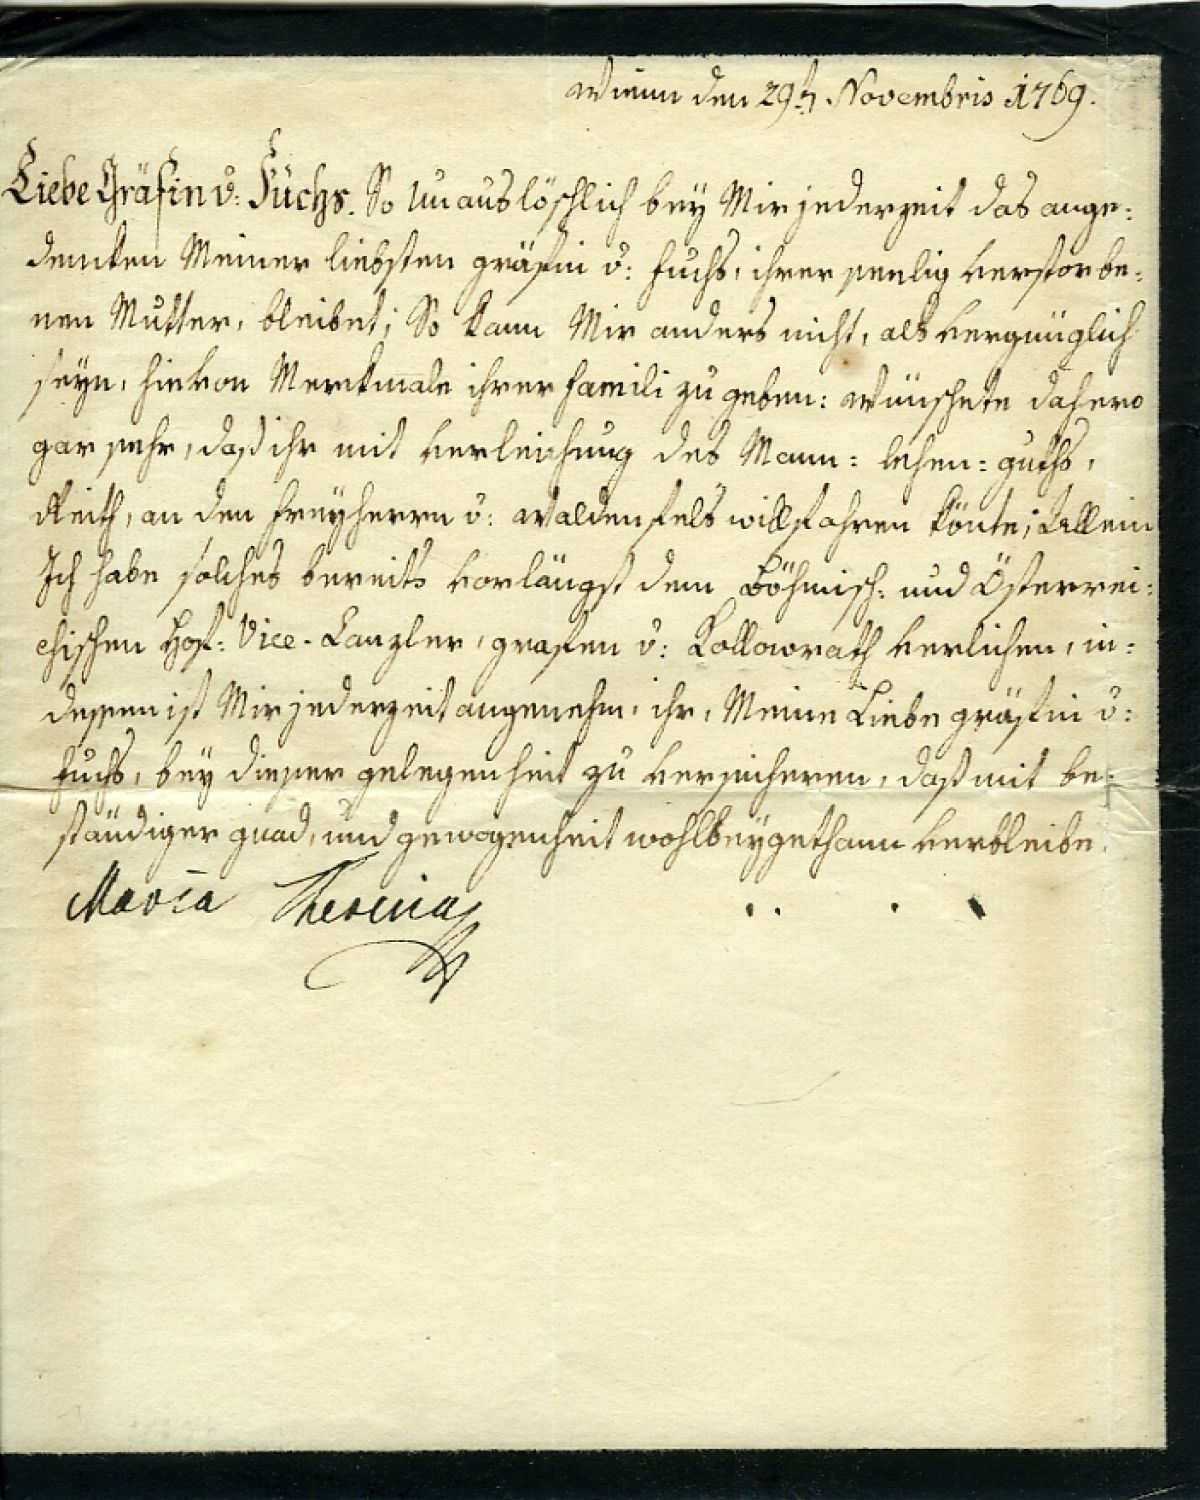 Wienn den 29ten Novembris 1769.
Liebe Gräfin v: Fuchs. So unauslöschlich bey Mir jederzeit das ange:
dencken Meiner liebsten gräfin v: fuchs, ihrer seelig verstorbe:
nen Mutter, bleibet; So kann Mir anders nicht, als vergnüglich
seyn, hievon Merckmale ihrer famili zu geben: wünschete dahero
gar sehr, daß ihr mit verleichung des Mann: lehen: guths,
Reith, an den freyherrn v: Waldenfels willfahren könte; Allein
Ich habe solches bereits vorlängst dem Böhmisch: und Österrei:
chischen Hof: Vice-Canzler, grafen v: Kollowrath verlichen, in:
dessen ist Mir jederzeit angenehm, ihr, Meine Liebe gräfin v:
fuchs, bey dieser gelegenheit zu versicheren, daß mit be:
ständiger gnad, und gewogenheit wohlbeygethann verbleibe.
Maria Theresia